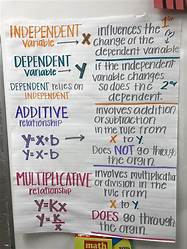 INDEPENDENT
Variable → x
influences the 1st
change of the
dependent variable
DEPENDENT
Variable → y
DEPENDENT relies on
INDEPENDENT
if the independent
variable changes
so does the 2nd
dependent.
ADDITIVE
relationship
y=x+b
y=x-b
involves addition
or subtraction
in the rule from
x to y
Does NOT go through
the orgin
MULTIPLICATIVE
relationship
y=Kx
involves multiplicatio
or division in the
rule from
x to y
DOES go through
the orgin.
math